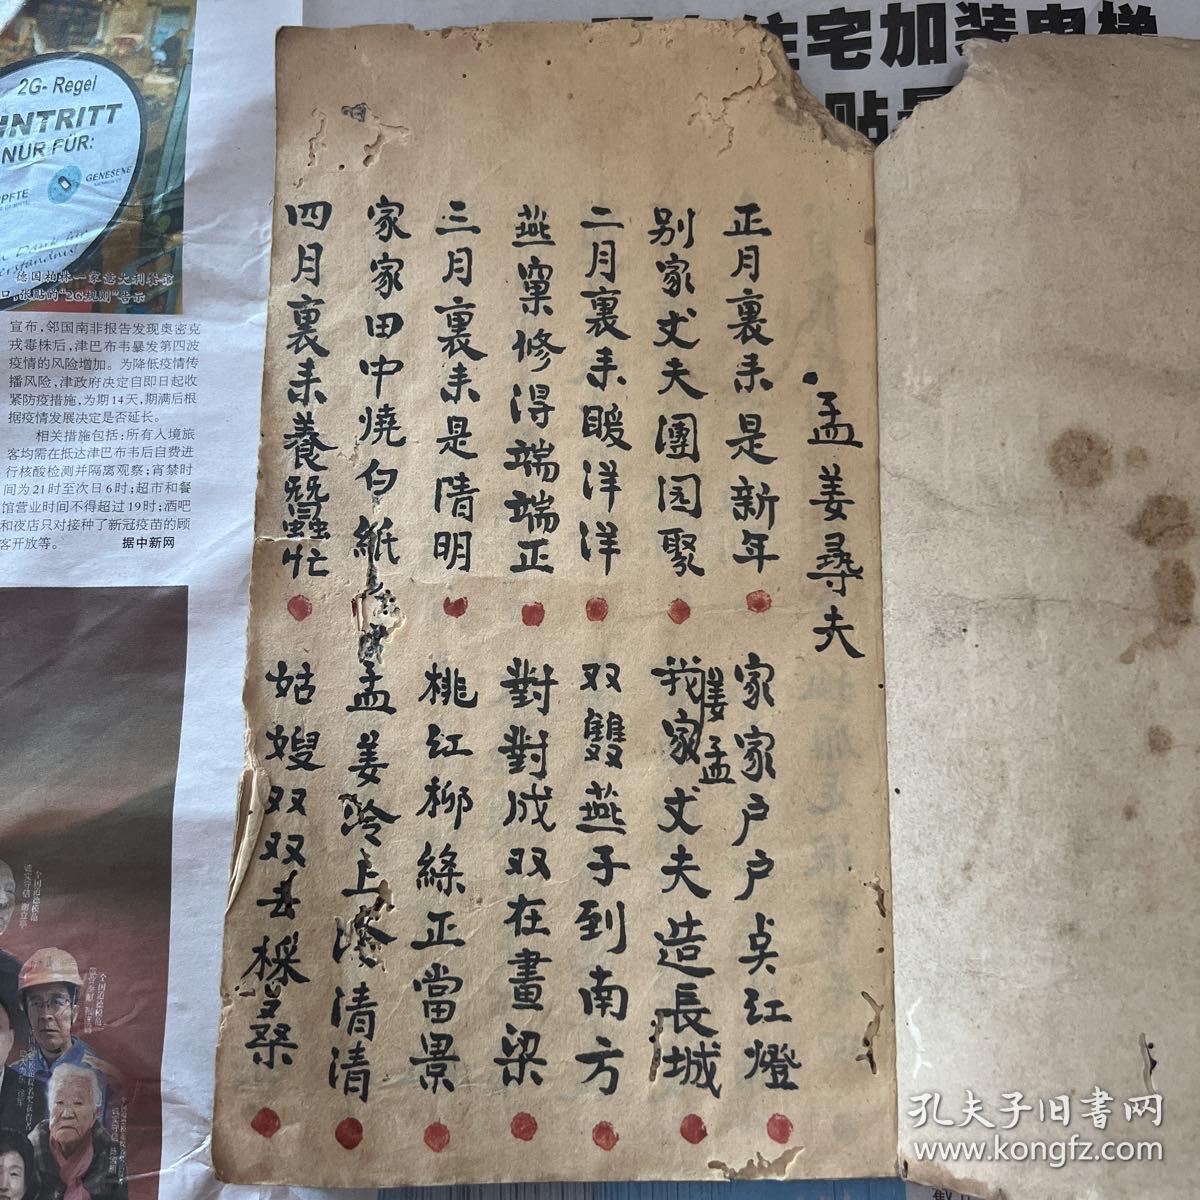 孟姜尋夫
正月裏来是新年 家家戶戶点红燈
别家丈夫團园聚 我家丈夫造長城
孟姜
二月裏来暖洋洋 双雙燕子到南方
燕窠修得端端正 對對成双在畫梁
三月裏来是清明 桃红柳綠正當景
家家田中燒白紙 孟姜冷上 清清
四月裏来養蠶忙 姑嫂双双去採桑
住宅加装电梯
2G- Regel
INTRITT
NUR FÜR:
GENESENE
德国柏林一家意大利餐馆
口,张贴的“2G规则”告示
宣布,邻国南非报告发现奥密克
戎毒株后,津巴布韦暴发第四波
疫情的风险增加。为降低疫情传
播风险,津政府决定自即日起收
紧防疫措施,为期14天,期满后根
据疫情发展决定是否延长。
相关措施包括:所有入境旅
客均需在抵达津巴布韦后自费进
行核酸检测并隔离观察;宵禁时
间为21时至次日6时;超市和餐
馆营业时间不得超过19时;酒吧
和夜店只对接种了新冠疫苗的顾
客开放等。 据中新网
全国道德模范
全国道德模范
孔夫子旧書网
www.kongfz.com